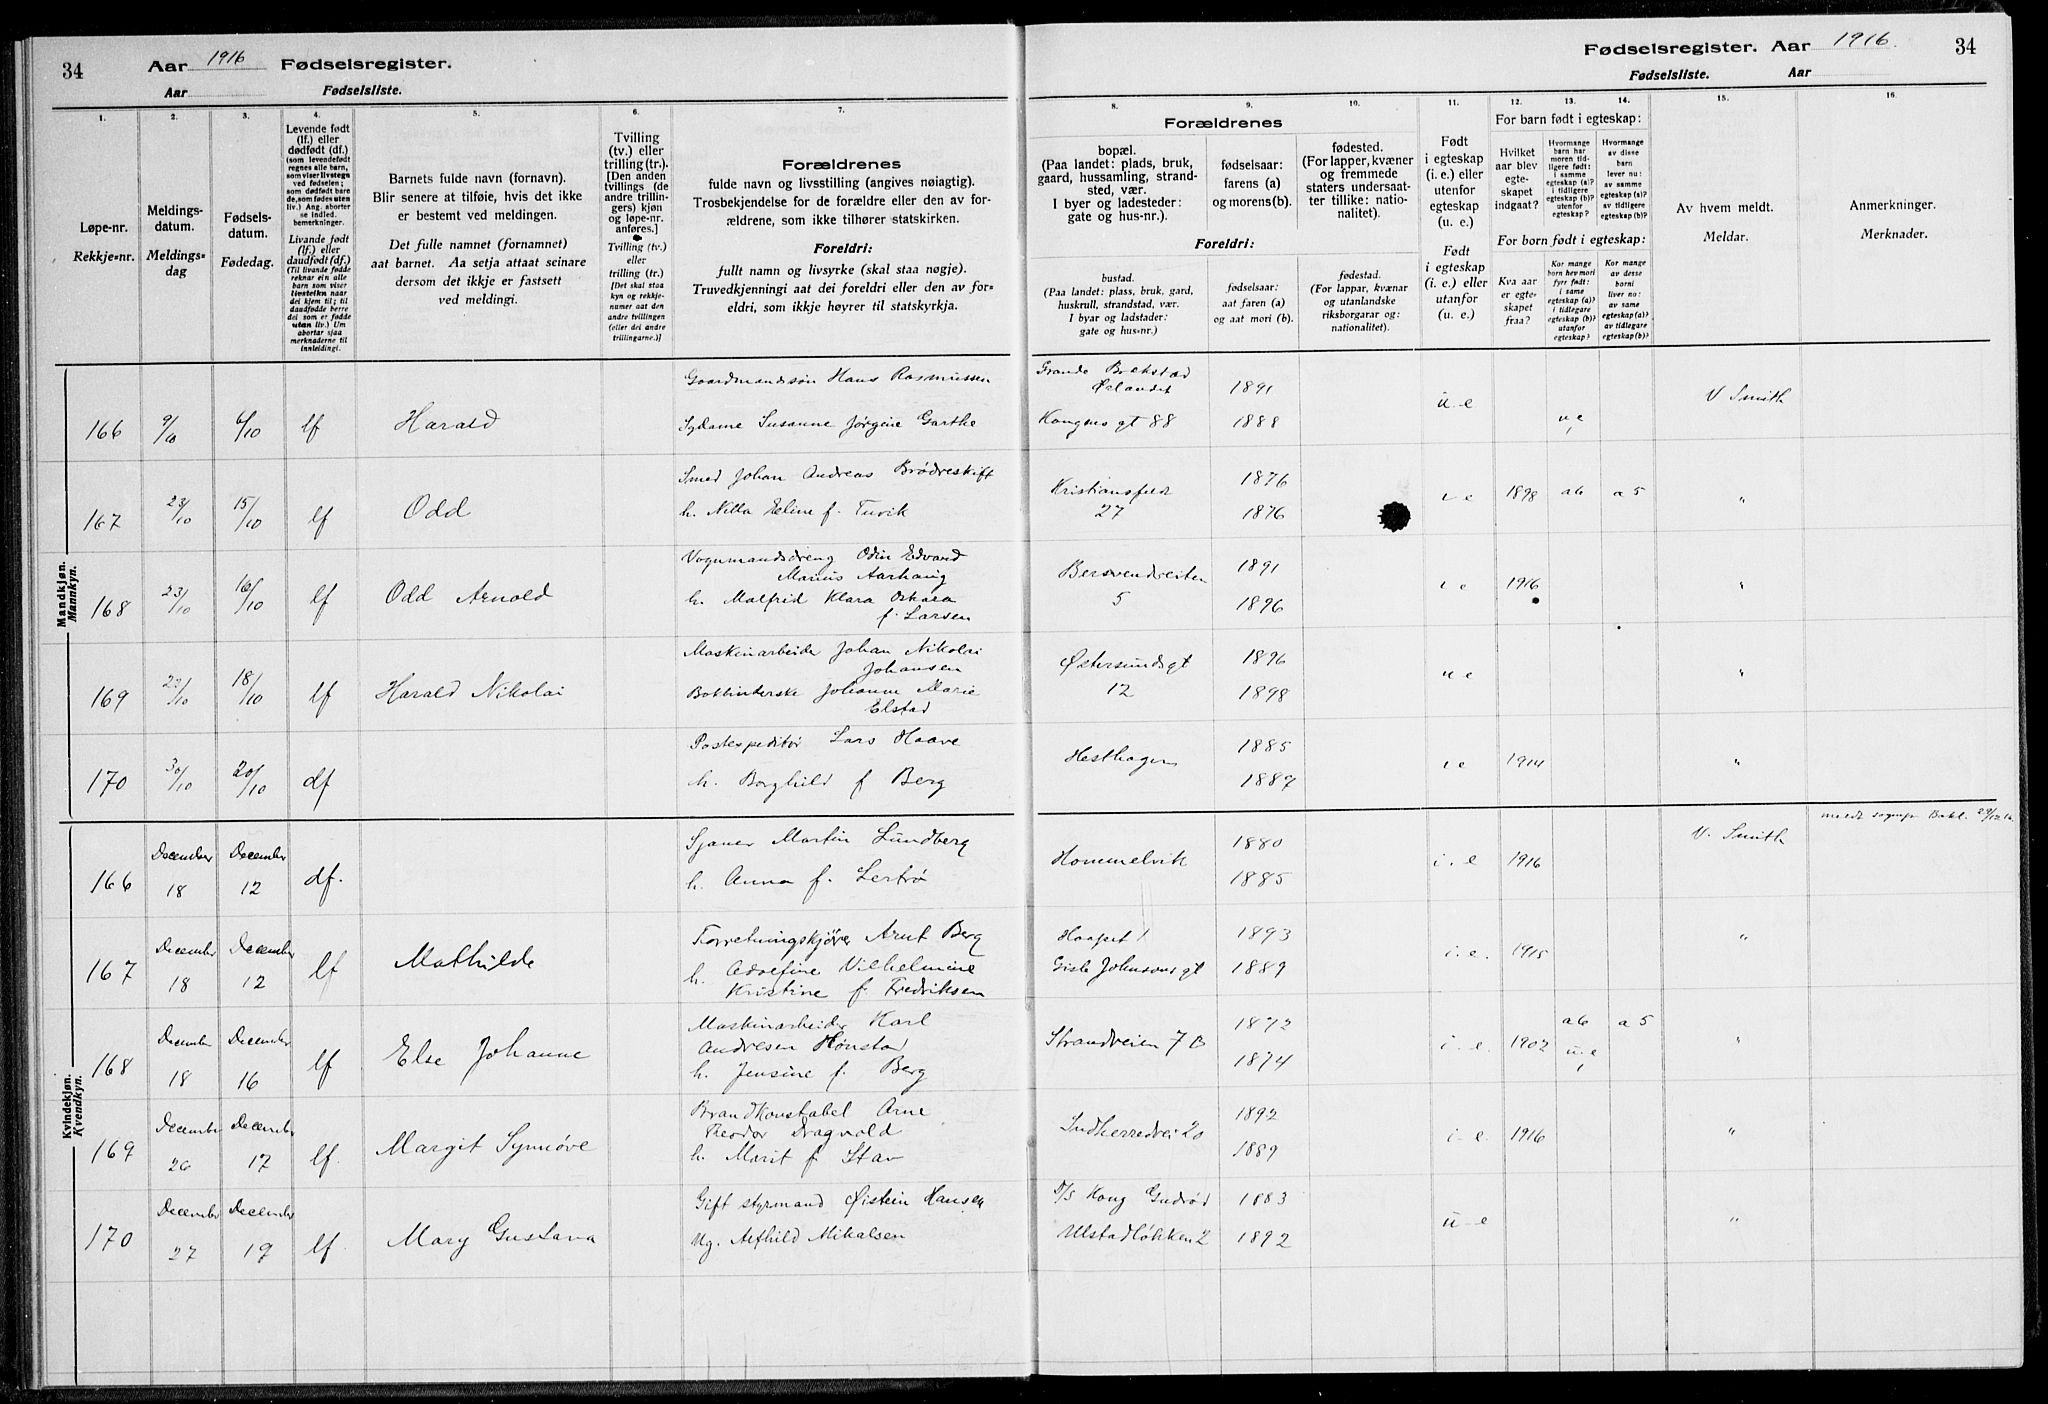 34
Aar 1916 Fødselsregister.
Aar Fødselsliste.
Fødselsregister. Aar 1916. 34
Fødselsliste. Aar
1. 2. 3. 4. 5. 6. 7. 8. 9. 10. 11. 12. 13. 14. 15. 16.
Løpe-nr.
Rekkje-nr.
Meldings-
datum.
Meldings-
dag
Fødsels-
datum.
Fødedag.
Levende født
(lf.) eller
dødfødt (df.)
(som levendefødt
regnes alle barn,
som viser livstegn
ved fødselen;
som dødfødt bare
de, som fødes uten
liv.) Ang. aborter
se indled.
bemerkninger.
Livande født
(lf.) eller
daudfødt (df.)
(Til livande fødde
reknar ein alle
barn som viser
livsteikn naar
dei kjem til; til
daudfødde berre
dei som er fødde
utan liv.) Um
abortar sjaa
merknaderne til
innleidingi.
Barnets fulde navn (fornavn).
Blir senere at tilføie, hvis det ikke
er bestemt ved meldingen.
Det fulle namnet (fornamnet)
aat barnet. Aa setja attaat seinare
dersom det ikkje er fastsett
ved meldingi.
Tvilling
(tv.) eller
trilling (tr.).
[Den anden
tvillings (de
andre trillin-
gers) kjøn
og løpe-nr.
anføres.]
Tvilling (tv.)
eller
trilling (tr.)
[Det skal staa
kyn og rekkje-
numer aat den
andre tvillingen
(eller dei andre
trillingarne.)]
Forældrenes
fulde navn og livsstilling (angives nøiagtig).
Trosbekjendelse for de forældre eller den av for-
ældrene, som ikke tilhører statskirken.
Foreldri:
fullt namn og livsyrke (skal staa nøgje).
Truvedkjenningi aat dei foreldri eller den av for-
eldri, som ikkje høyrer til statskyrkja.
Forældrenes
bopæl.
(Paa landet: plads, bruk,
gaard, hussamling, strand-
sted, vær.
I byer og ladesteder:
gate og hus-nr.).
fødselsaar:
farens (a)
og morens(b).
fødested.
(For lapper, kvæner
og fremmede
staters undersaat-
ter tillike: natio-
nalitet).
Foreldri:
bustad.
(Paa landet: plass, bruk, gard,
huskrull, strandstad, vær.
I byar og ladstader:
gate og hus-nr.)
fødselsaar:
aat faren (a)
og aat mori (b).
fødestad.
(For lappar, kvænar
og utanlandske
riksborgarar og:
nationalitet).
Født
i egteskap
(i. e.) eller
utenfor
egteskap
(u. e.)
Født
i egteskap
(i. e.) eller
utanfor
(u. e.)
For barn født i egteskap:
Hvilket
aar blev
egte-
skapet
indgaat?
Hvormange
barn har
moren tid-
ligere født:
i samme
egteskap (a)?
i tidligere
egteskap (b)?
utenfor
egteskap?
Hvormange
av disse
barn
lever nu:
av samme
egteskap (a)?
av tidligere
egteskap (b)?
For born født i egteskap:
Kva aar
er egte-
skapet
fraa?
Kor mange
born hev mori
fyrr født:
i same
egteskap (a)?
i tidlegare
egteskap (b)?
utanfor
egteskap?
Kor mange
av desse
borni
liver nu:
av same
egteskap (a)?
av tidlegare
egteskap (b)?
Av hvem meldt.
Meldar.
Anmerkninger.
Merknader.
Mandkjøn.
Mannkyn.
Gaardmandssøn Hans Rasmussen Brekstad Ørlandet 1891
166 9/10 6/10 lf Harald Sydame Susanne Jørgine Garthe Kongens gt 88 1888 u e u e 1 V Smith
Smed Johan Andreas Brødreskift Kristiansfeldt 1876
167 23/10 15/10 lf Odd h. Eline f. Tuvik 27 1876 i e 1898 a6 a5 "
Vognmandsdreng Odin Edvard
Marius Aarhaug 1891
168 23/10 16/10 lf Odd Arnold h. Malfrid Klara Oskara
f. Larsen 5 1896 i e 1916 "
Maskinarbeider Johan Nikolai
Johansen Østersundsgt 1896
169 22/10 18/10 lf Harald Nikolai Johanne Marie
Elstad 12 1898 u e "
Postexpeditør Lars Haave Hesthagen 1885
170 30/10 20/10 df h. Borghild f Berg 1887 i e 1914 "
Kvindekjøn.
Kvendkyn.
December December Sjauer Martin Lundberg Hommelvik 1880 V. Smith
166 18 12 df. h. Anna f. Lertrø 1885 i. e 1916
December December Forretningskjører Arnt Berg 1 1893
167 18 12 lf Mathilde h. Adolfine Vilhelmine Gisle Johnsons gt 1889 i. e. 1915 "
Kristine f. Fredriksen
December December Maskinarbeider Karl
Andresen Hønstad Strandveien 7 B 1872 a6 a5
168 18 16 lf Else Johanne h. Jensine f. Berg 1874 i. e. 1902 u.e 1 "
December December Brandkonstabel Arne
Theodor Dragvold Indherredvei 20 1892
169 26 17 lf. Margit Synnøve h. Marit f Stav 1889 i-e. 1916 "
December December Gift styrmand Øistein Hansen D/S Kong Gudrød 1883
170 27 19 lf. Mary Gustava Ug. Alfhild Mikalsen Ulstadløkken 2 1892 u-e "